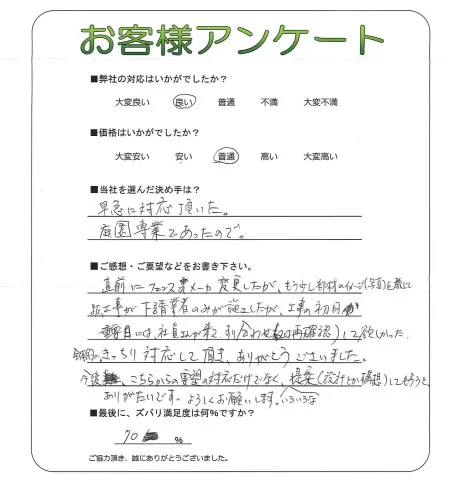 お客様アンケート
■弊社の対応はいかがでしたか?
大変良い 良い 普通 不満 大変不満
■価格はいかがでしたか?
大変安い 安い 普通 高い 大変高い
■当社を選んだ決め手は?
早急に対応頂いた。
庭園専業であったので。
■ご感想・ご要望などをお書き下さい。
直前にフェンスメーカ変更したが、もう少し部材のイメージ(写真)を
工事が下請業者のみが施工したが、工事の初日
には、社員さんが来て、打合わせ(再確認)して欲しかった。
きっちり対応して頂き、ありがとうございました。
今後、こちらからの要望の対応だけでなく、提案(設計とか構想)してもらうと、
ありがたいです。よろしくお願いします。いろいろな
■最後に、ズバリ満足度は何%ですか?
70 %
ご協力頂き、誠にありがとうございました。